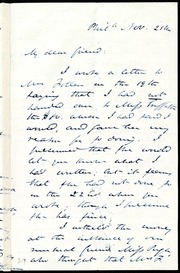 Phila Nov. 21st
My dear friend:
I wrote a letter to
Mrs. Foster on the 19th
saying that I had not
handed over to Miss
the $10. which I had said I
would, and gave her my
reason for so doing. I
presumed that she would
let you know what I
had written; but it seems
that she had not done so
on the 22d when you
wrote; though I presume
she has since.
I withheld the money,
at the instance of our
mutual friend Miss
who thought that